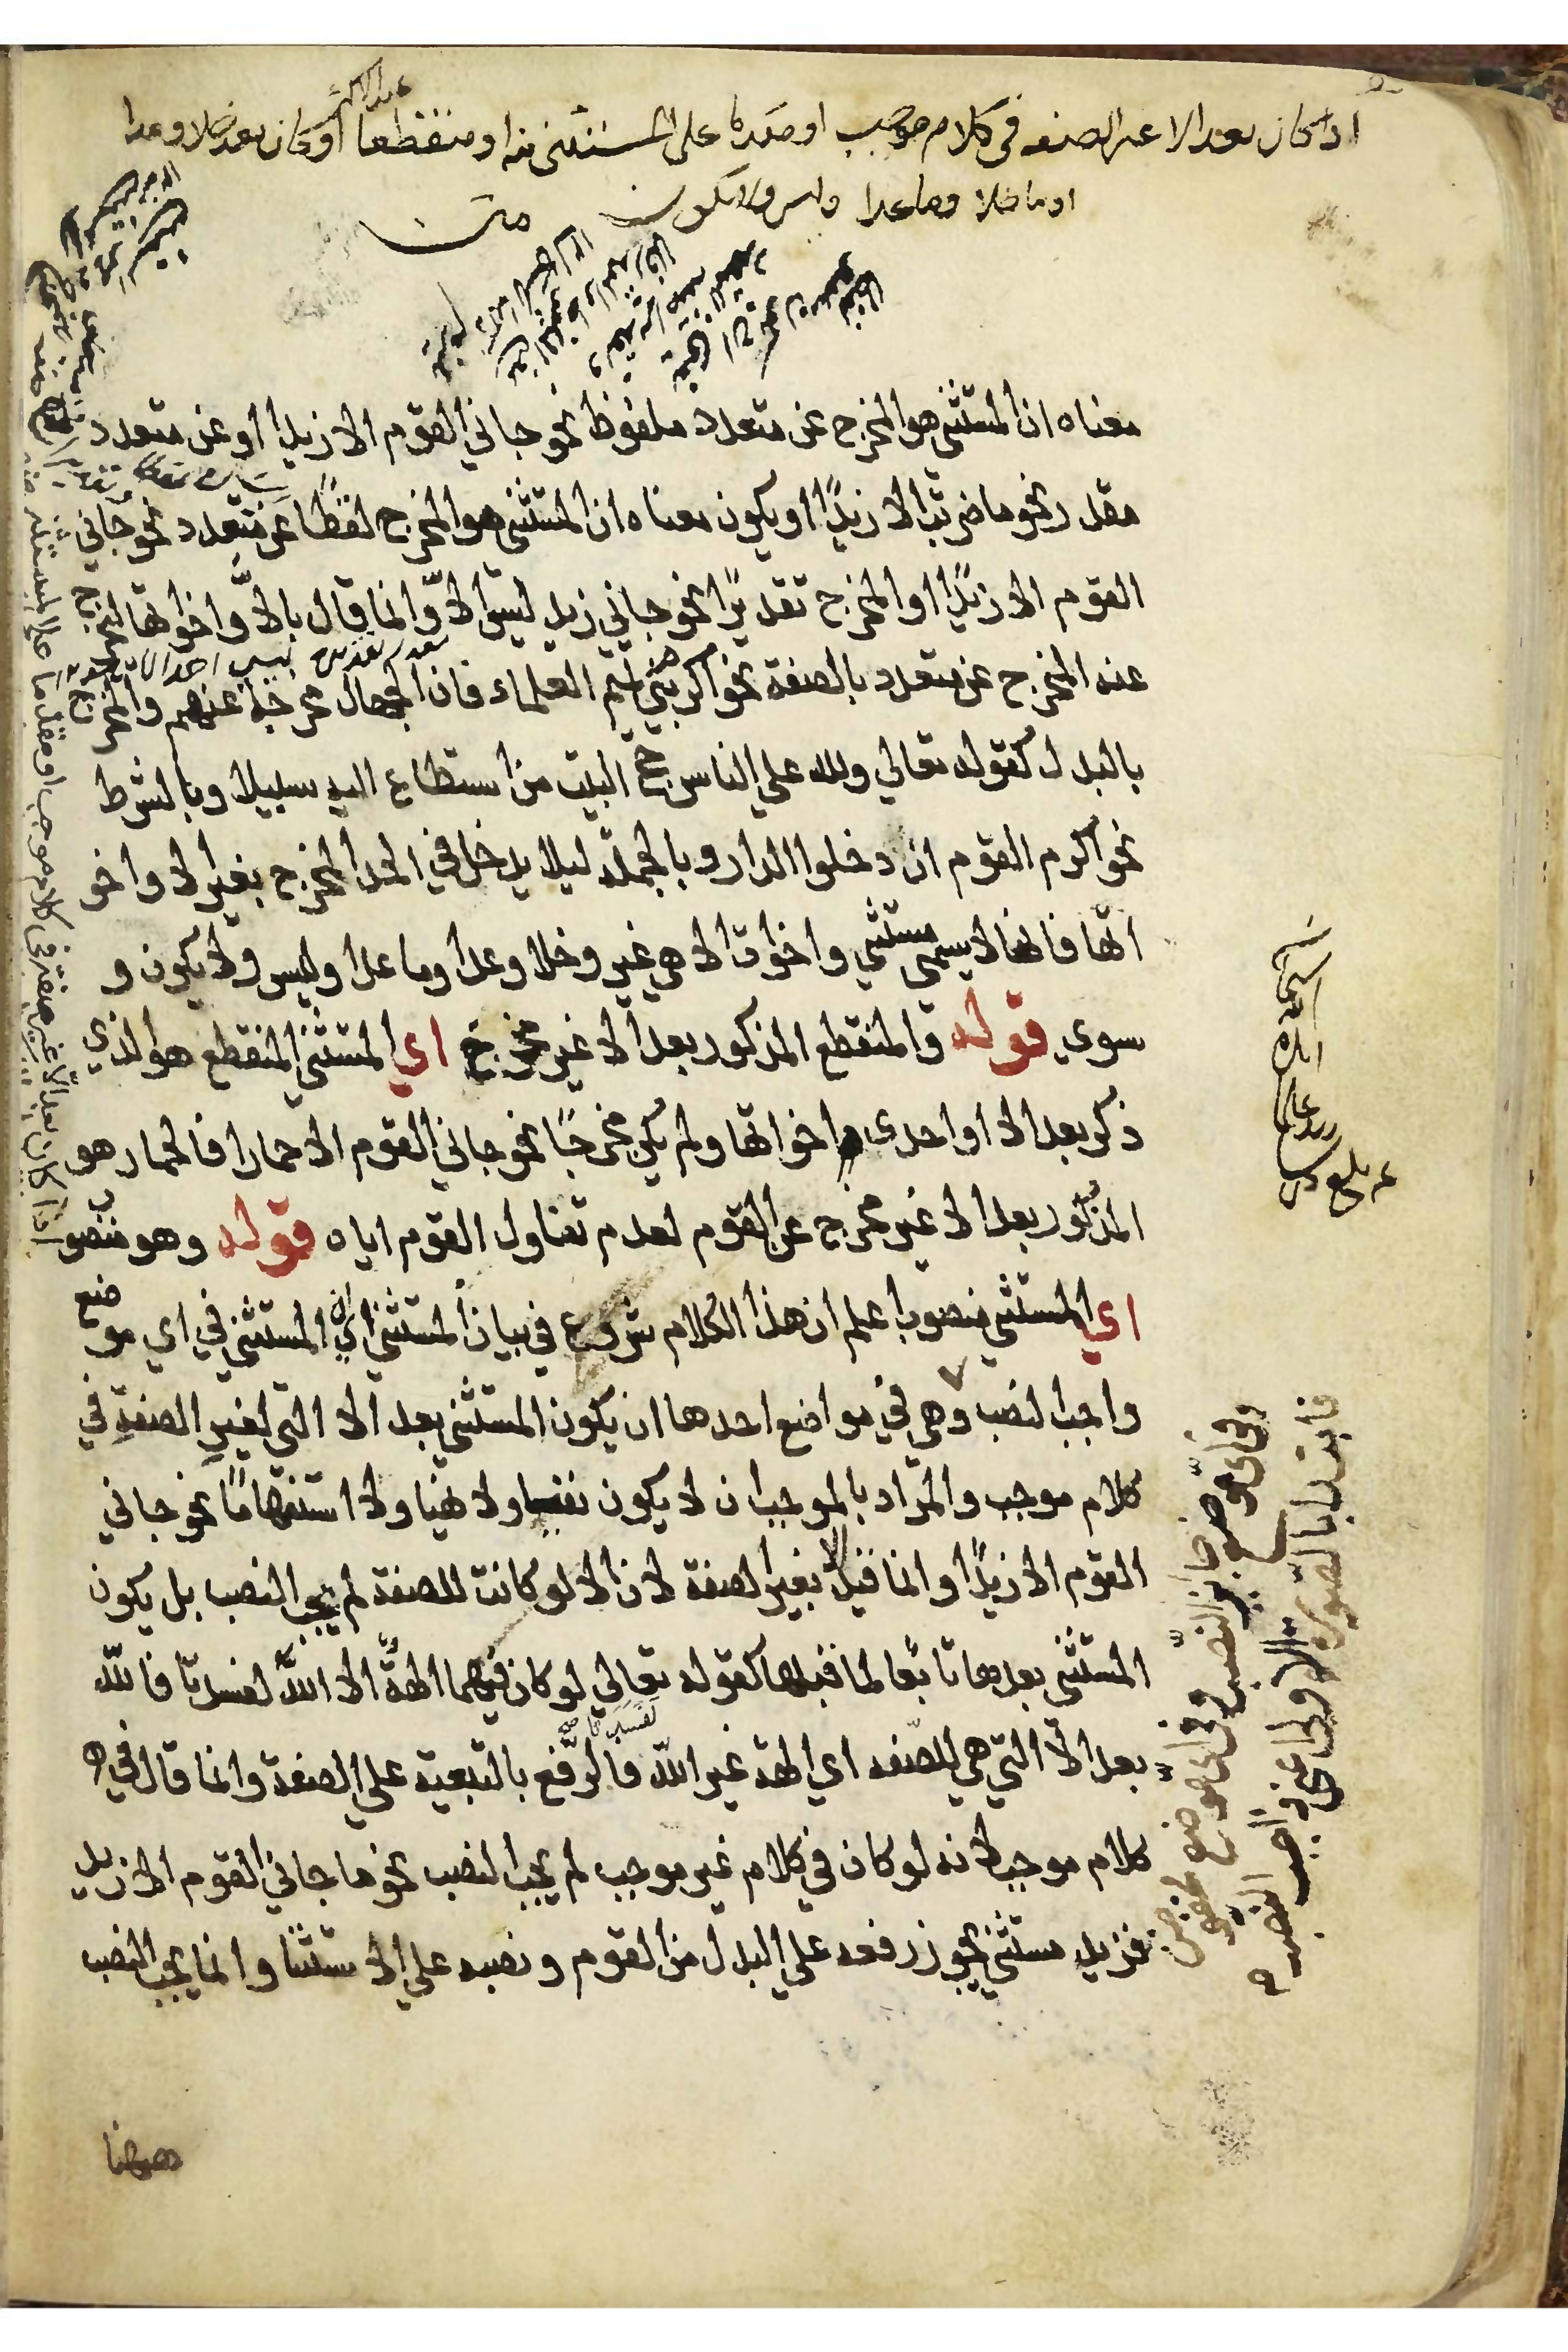 اذا كان بعد الا غير الصفه فى كلام موجب او مقدما على المستثنى منه او منقطعا او كان بعد خلا وعدا
او ما خلا وما عدا وليس ولا يكون متن
معناه ان المستثنى هو المخرج عن متعدد ملفوظ نحو جاني القوم الا زيدا او عن متعدد
مقدر نحو ما ضربت الا زيدًا او يكون معناه ان المستثنى هو المخرج لفظًا عن متعدد نحو جاني
القوم الا زيدًا او المخرج تقديرًا نحو جاني زيد ليس الاّ وانما قال بالاّ واخواتها ليخرج
عنه المخرج عن متعدد بالصفة نحو اكرم بني تميم العلماء فان الجهال مخرجة عنهم والمخرج
بالبدل كقوله تعالي ولله علي الناس حج البيت من استطاع اليه سبيلا وبالشرط
نحو اكرم القوم ان دخلوا الدار وبالجملة ليلا يدخل في الحد المخرج بغير الا واخو
اتها فانها لا يسمي مستثني واخوات الا هي غير وخلا وعدا وما عدا وليس ولا يكون و
سوى قوله والمنقطع المذكور بعد الا غير مخرج اي المستثني المنقطع هو الذي
ذكر بعد الا او احدى اخواتها ولم يكن مخرجًا نحو جاني القوم الا حمارا فالحمار هو
المذكور بعد الا غير مخرج عن القوم لعدم تناول القوم اياه قوله وهو منصوب
اي المستثني منصوب اعلم ان هذا الكلام شروع في بيان المستثني اي ان المستثني في اي موضع
واجب النصب وهي في مواضع احدها ان يكون المستثني بعد الا التي لغير الصفة في
كلام موجب والمراد بالموجب ان لا يكون نفيا ولا نهيا ولا استفهامًا نحو جاني
القوم الا زيدًا وانما قيل الا بغير الصفة لان الا لو كانت للصفة لم يجب النصب بل يكون
المستثني بعدها تابعا لما قبلها كقوله تعالي لو كان فيهما الهةٌ الا اللهُ لفسدتا فالله
بعد الا التي هي للصفه اي الهة غير الله فالرفع بالتبعية علي الصفة وانما قال في
كلام موجب لانه لو كان في كلام غير موجب لم يجب النصب نحو ما جاني القوم الا زيد
فزيد مستثني يجوز رفعه علي البدل من القوم ونصبه علي الاستثنا وانما يجب النصب
ههنا
اذا كان بعد الا غير صفة فى كلام موجب او مقدما على المستثنى منه
وفى اى موضع جايز النصب وفى اى موضع مخفوض
فابتدا بالصورة الاولى اعنى واجب النصب